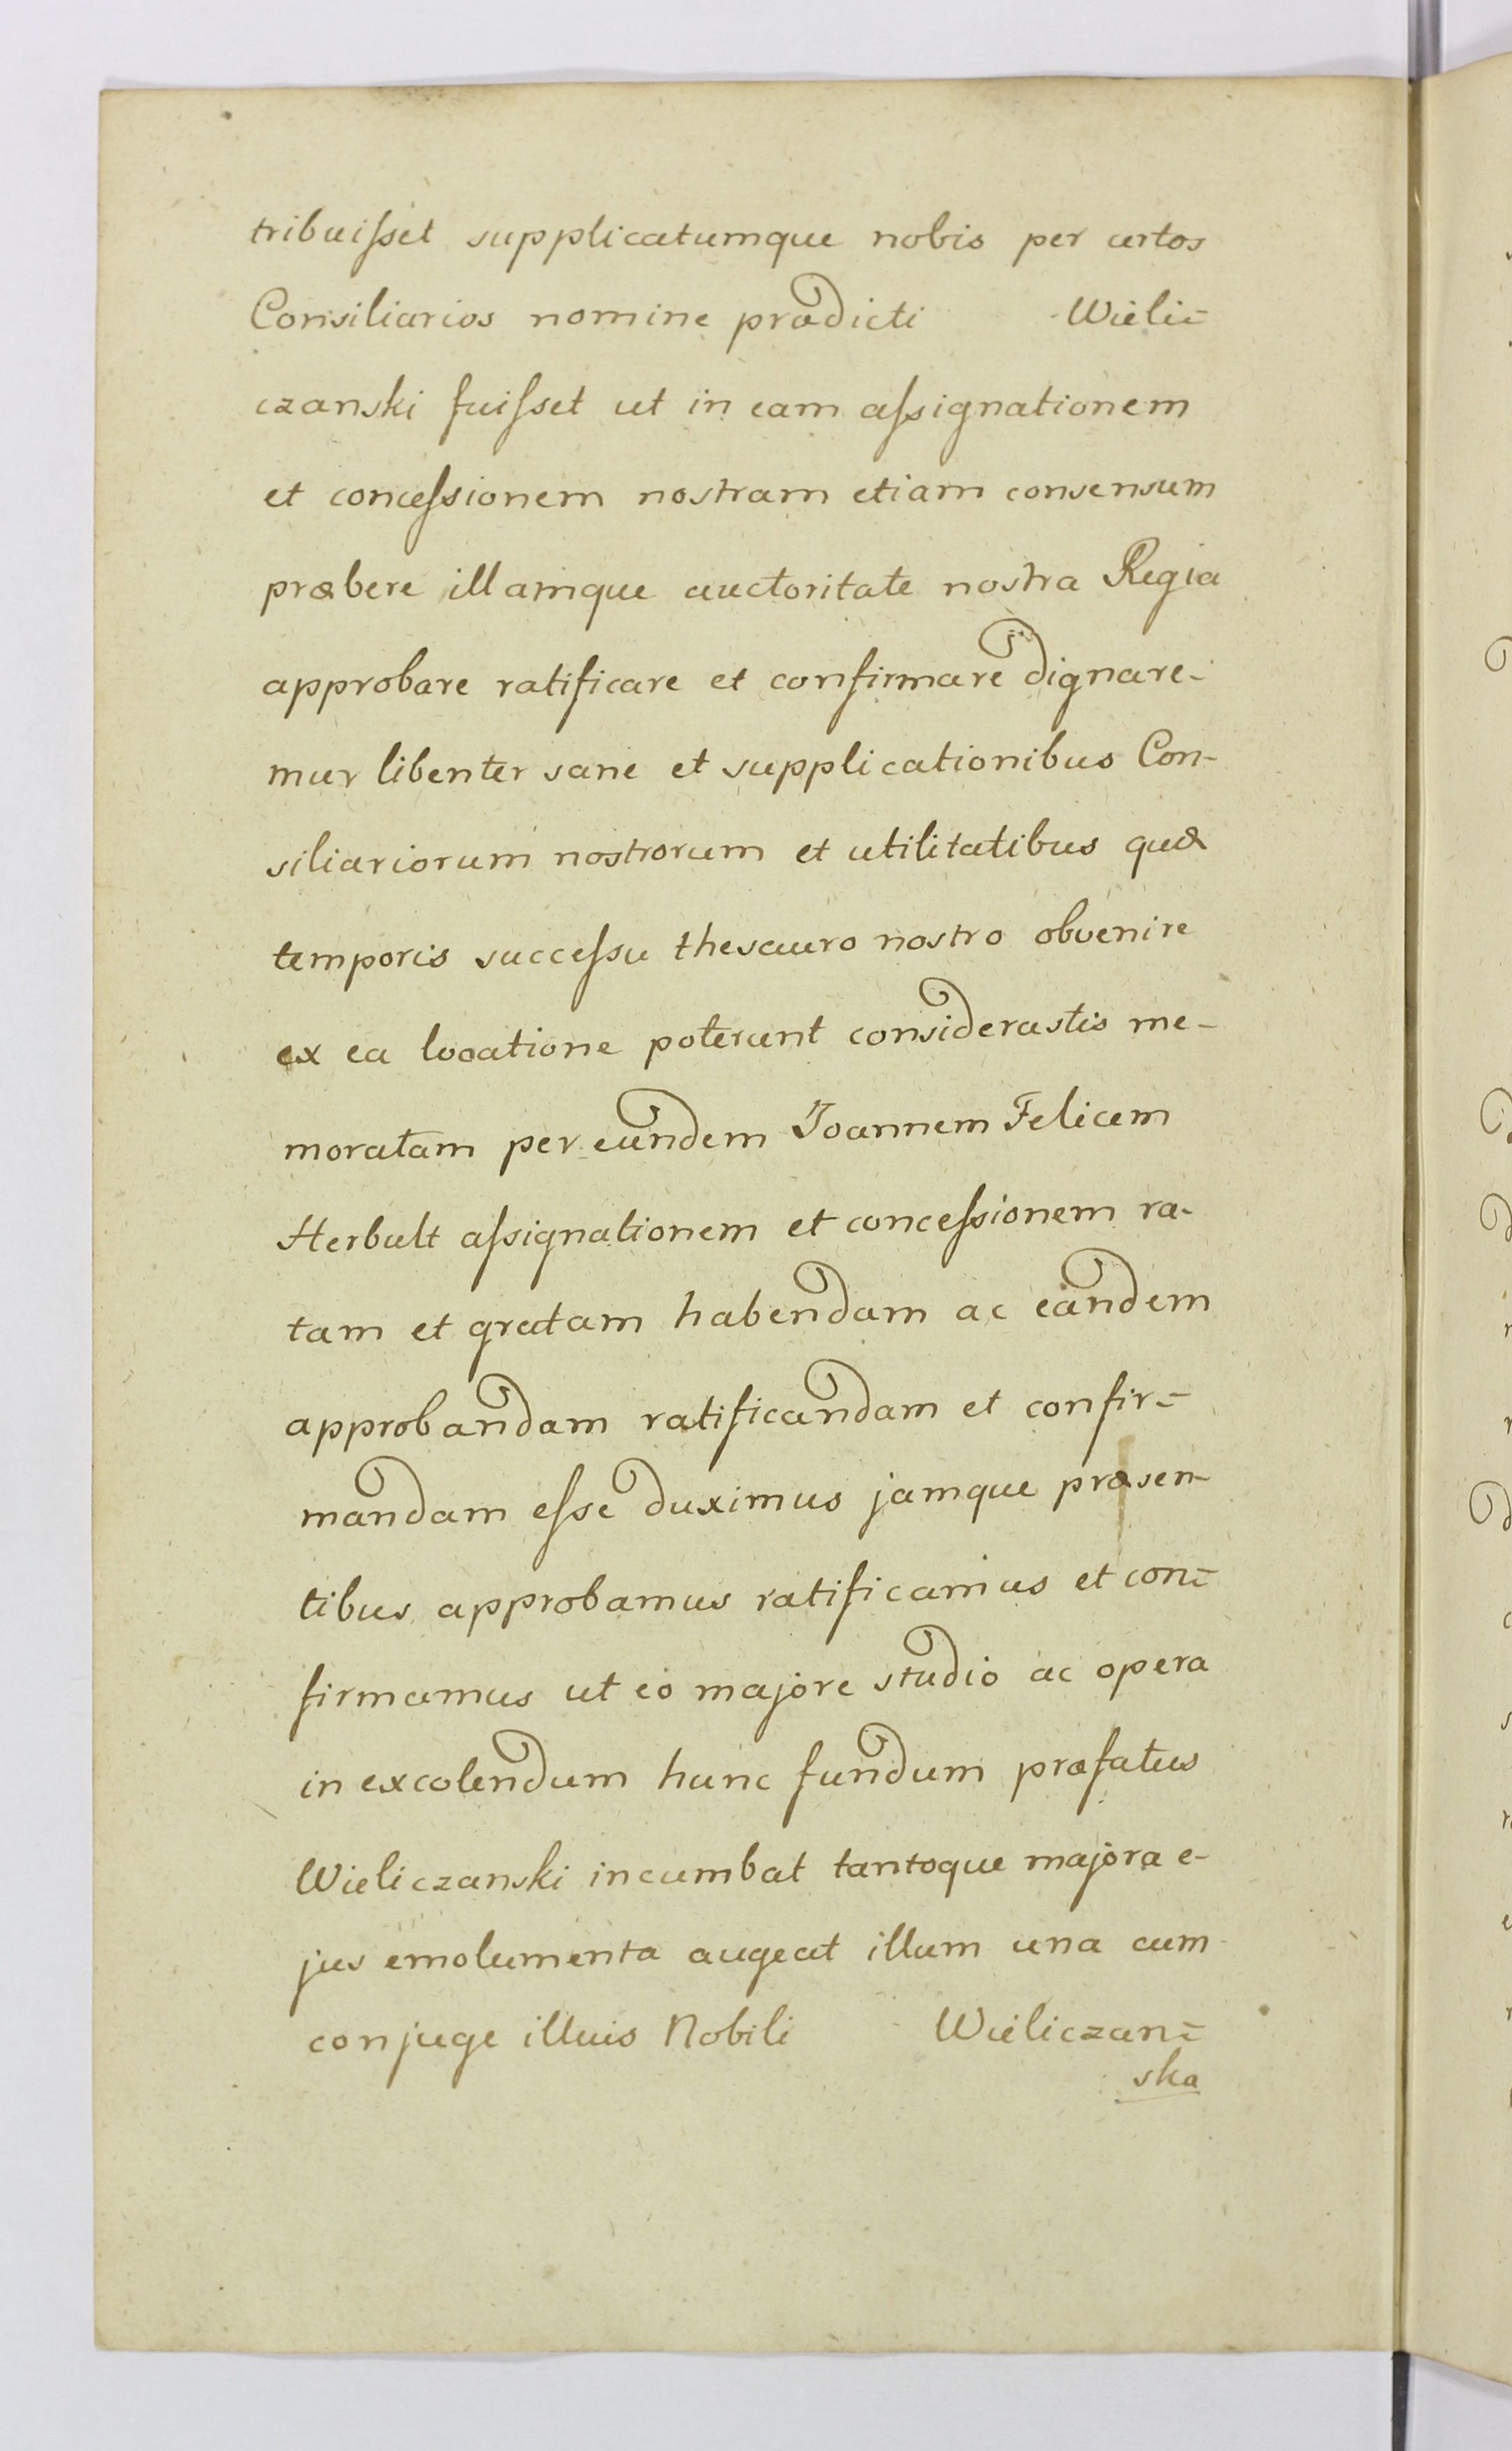 tribuiſset supplicatumque nobis per certos
Consiliarios nomine prædicti Wielic=
czanski fuiſset ut in eam aſsignationem
et conceſsionem nostram etiam consensum
præbere illamque auctoritate nostra Regia
approbare ratificare et confirmare dignare-
mur libenter sane et supplicationibus Con-
siliariorum nostrorum et utilitatibus quæ
temporis succeſsu thesauro nostro obvenire
ex ea locatione poterunt considerastis me-
moratam per eundem Joannem Felicem
Herbult aſsignationem et conceſsionem ra-
tam et gratam habendam ac eandem
approbandam ratificandam et confir=
mandam eſse duximus jamque præsen-
tibus approbamus ratificamus et con=
firmamus ut eo majore studio ac opera
in excolendum hunc fundum præfatus
Wieliczanski incumbat tantoque majora e-
jus emolumenta augeat illum una cum
conjuge illuis Nobili Wieliczan=
ska